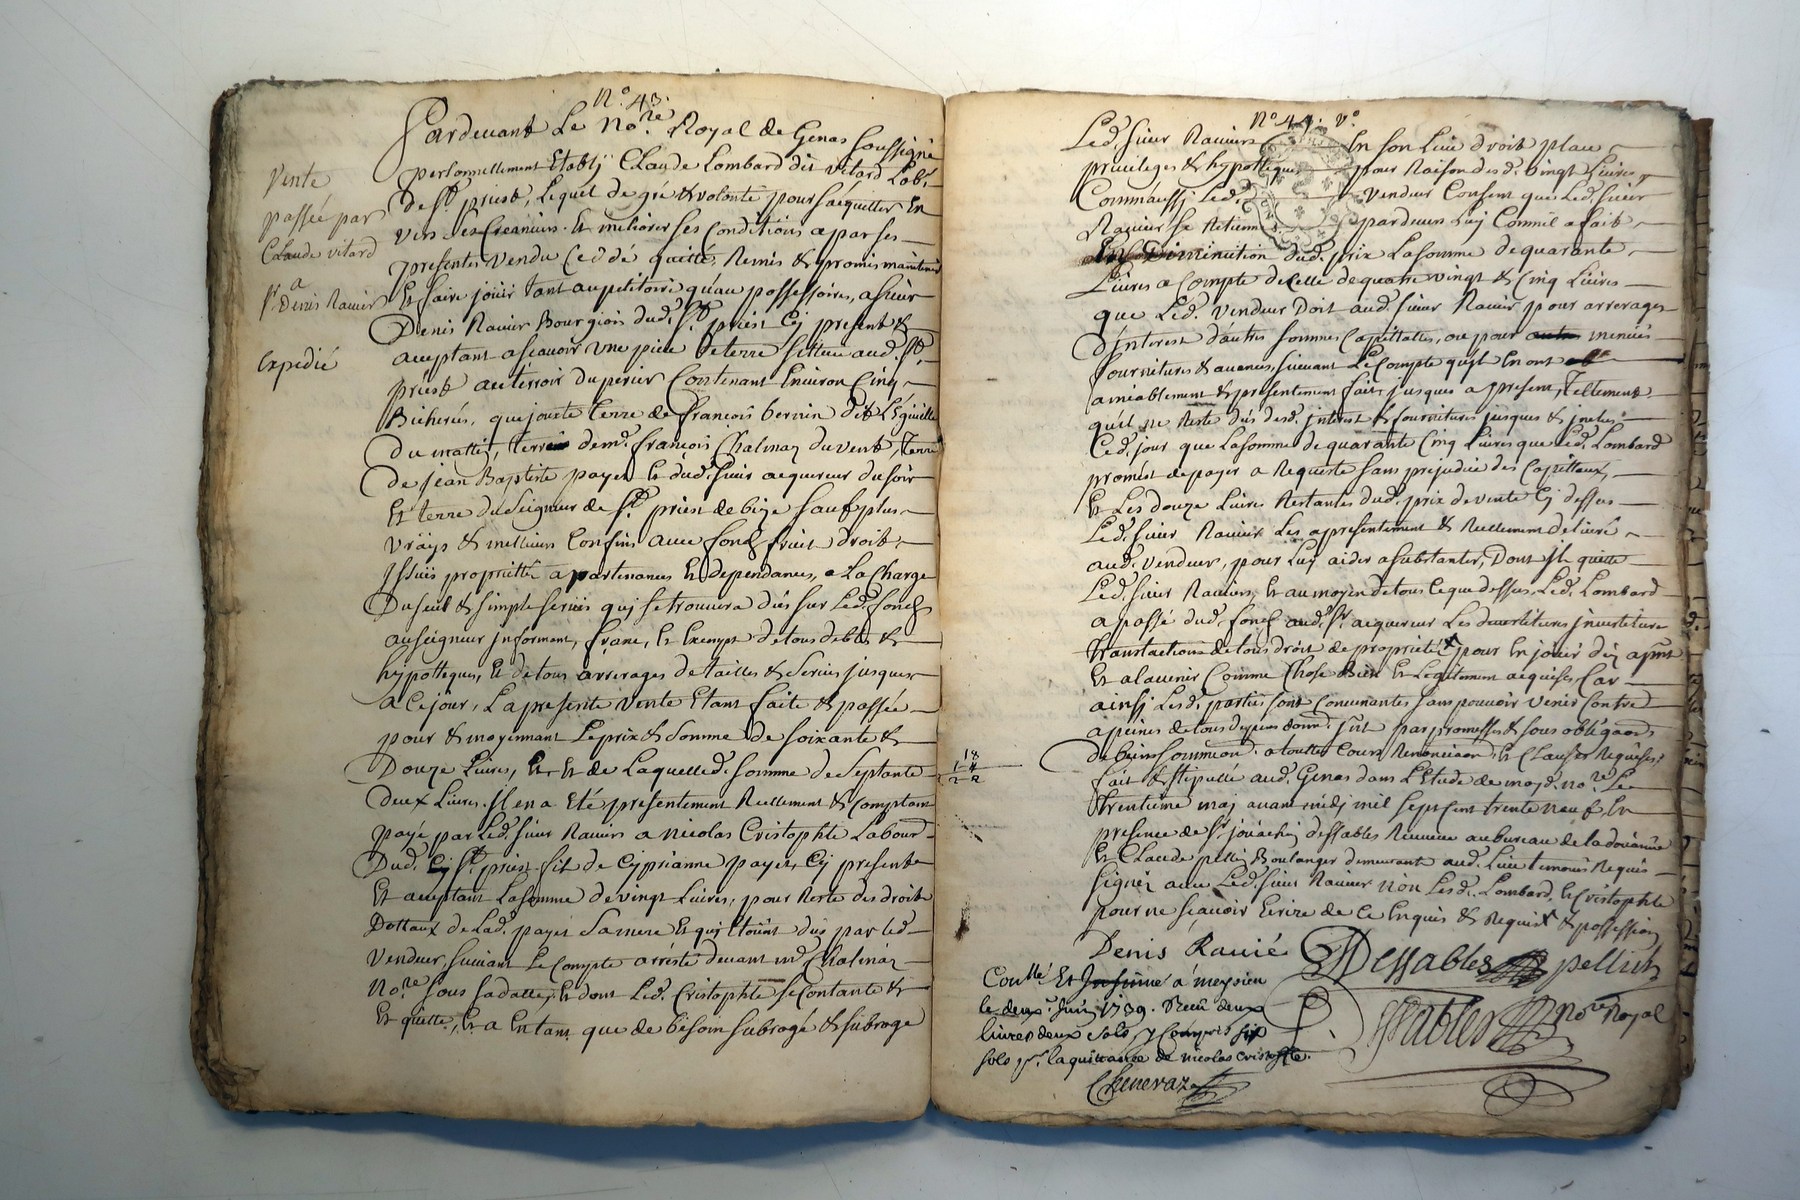 N.o 43.
Pardevant Le No.re Royal de Genas soussigné
personnellement Etably Claude Lombard dit vitard Lab.r
de S.t priest, Lequel de gré & volonté pour s'acquitter En
vers ses Creanciers Et meliorer ses Conditions a par ses
presentes vendu Ceddé quitté, Remis & promis maintenir
Et faire joüir tant au petitoire qu'au possessoires, a sieur
Denis Ravier Bourgeois dud. S.t priest Cy present &
acceptant ascavoir une piece de terre scittuée aud. S.t
priest au terroir du perier Contenant Environ Cinq
Bicherés, que jouxte terre de françois bernin dit L'Eguille
du mattin, terre de m.e françois Chalman du vent, Terre
de jean Baptiste payet Et dud. sieur acquereur du soir
Et terre du seigneur de S.t priest de bize sauf plus
vrays & meilleurs Confins avec fond fruict droit
Issües proprietté apartenances Et dependances, a La Charge
Du seul & simple servis qui se trouvera dus sur Led. fond
au seigneur jnformant, franc, Et Exempt de tous debte &
hypotteques, Et de tous arrerages de tailles & servis jusques
a Ce jour, La presente vente Etant faite & passée
pour & moyennant Le prix & somme de soixante &
Douze Livres, Et de Laquelle d. somme de Septante
deux Livres. Il en a Eté presentement Reellement & Comptant
payé par Led. sieur Ravier a nicolas Cristophle Labour.
Dud. S.t priest fils de Cyprianne payet, Cy present
Et acceptant La somme de vingt Livres, pour Reste des droits
Dottaux de Lad. payet sa mere Et qui Etoint dus par led.
vendeur, suivant Le Compte arresté devant m.e Chalman
No.re sous sa datte, Et dont Led. Cristophle se Contante &
Et quitte, Et a En tant que de besoin subrogé & subroge
Vente
passée par
Claude vitard
a
S.r Denis Ravier
Expedié
N.o 43. v.o
Led. sieur Ravier En son Lieu droit place
privileges & hypotteques pour Raison desd. vingt Livres
Comme aussi Led. vendeur Consent que Led. sieur
Ravier se Retienne pardevers Luy Comme a fait
En Diminution dud. prix La somme de quarante
Livres a Compte de Celle de quatre vingt & Cinq Livres
que Led. vendeur Doit aud. sieur Ravier pour arrerages
d'interest d'autres sommes Capittalles, ou pour menües
fournitures & avances, suivant Le Compte qu'ils En ont
amiablement & presentement fait, jusques a present, Tellement
qu'il ne Reste dus desd. jnterest & fournitures jusques & jnclus
Ce d. jour que La somme de quarante Cinq Livres que Led. Lombard
promet de payer a Requeste sans prejudice des Capittaux,
Et Les douze Livres Restantes dud. prix de vente Cy dessus
Led. sieur Ravier Les a presentement & Reellement delivré
aud. vendeur, pour Luy aider a substanter, Dont jl quitte
Led. sieur Ravier, Et au moyen de tous Ce que dessus, Led. Lombard
a passé dud. fond aud. S.r acquereur Les devestitures jnvestiture
transactions de tous droit de proprieté pour En jouir dez apnt
Et a l'avenir Comme Chose Bien Et Legitimement acquises Car
ainsi Lesd. parties sont Convenantes sans pouvoir venir Contre
a peines de tous depens par promesses & sous obligaons
de biens soumions a touttes Cours Renonciaon, Et Clauses Requises,
fait & stipullé aud. Genas dans L'Etude de moyd. no.re Le
trentieme may avant midy mil sept Cent trente neuf En
presence de S.r jouachin dessables Receveur au bureau de la doüanne
Et Claude pellin Boulanger demeurant aud. Lieu temoins Requis
signez avec Led. sieur Ravier non Lesd. Lombard, Et Cristophle
pour ne scavoir Ecrire de Ce Enquis & Requis & possession
18
1 4
2 2
Denis Ravié Dessables pellin
Dessables no.re Royal
Con.llé Et Insinué a meysieu
le deux.e Juin 1739. Receu deux
livres deux sols, y Compris six
sols pr. la quittance de nicolas cristofle.
Cheneraz